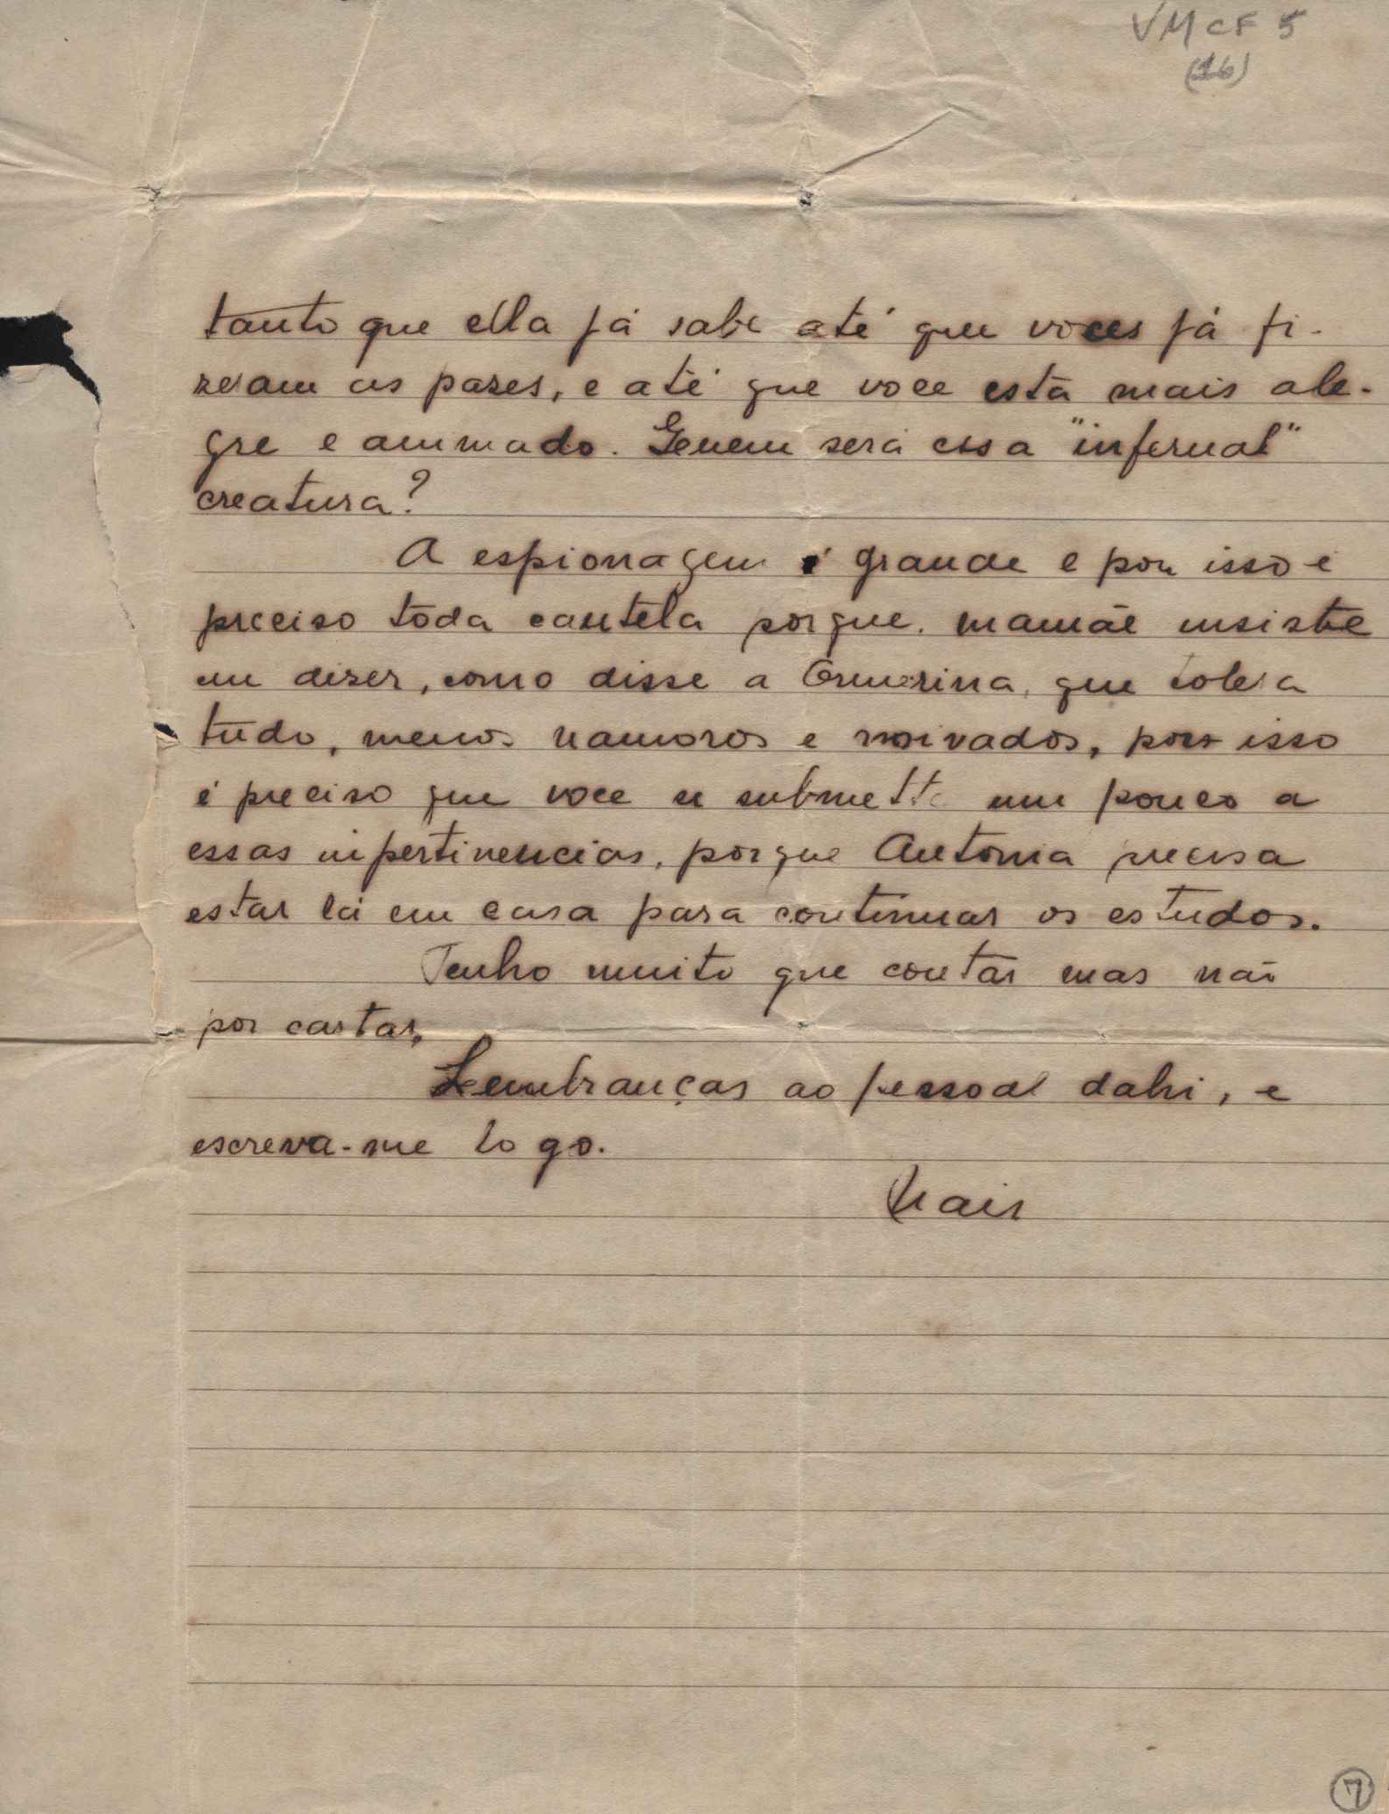 VMCF 5
(16)
tanto que ella já sabe até que voces já fi-
zeram as pazes, e até que voce está mais ale-
gre e animado. Quem será essa "infernal"
creatura?
A espionagem é grande e por isso é
preciso toda cautela porque. mamãe insiste
em dizer, como disse a que tolera
tudo, menos namoros e noivados, por isso
é preciso que voce se submetta um pouco a
essas inpertinencias, porque Antonia precisa
estar lá em casa para continuar os estudos.
Tenho muito que contar mas não
por cartas.
Lembranças ao pessoal dahi, e
escreva-me logo.
Nair
7